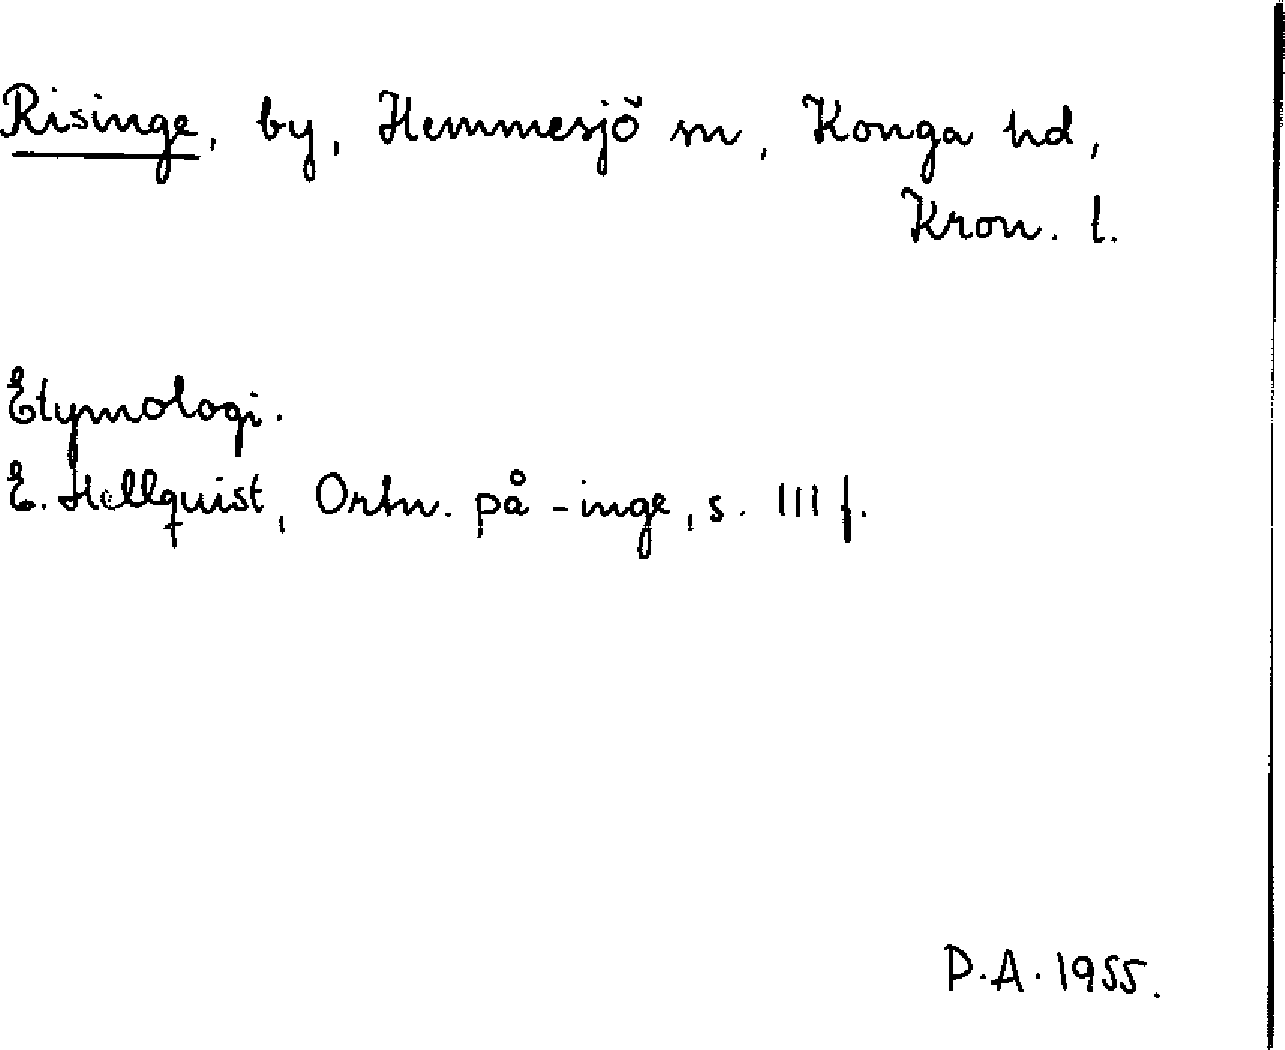 Risinge, by, Hemmesjö sn, Konga hd,
Kron. l.
Etymologi.
E. Hellquist, Ortn. på -inge, s. 111 f.
P.A. 1955.